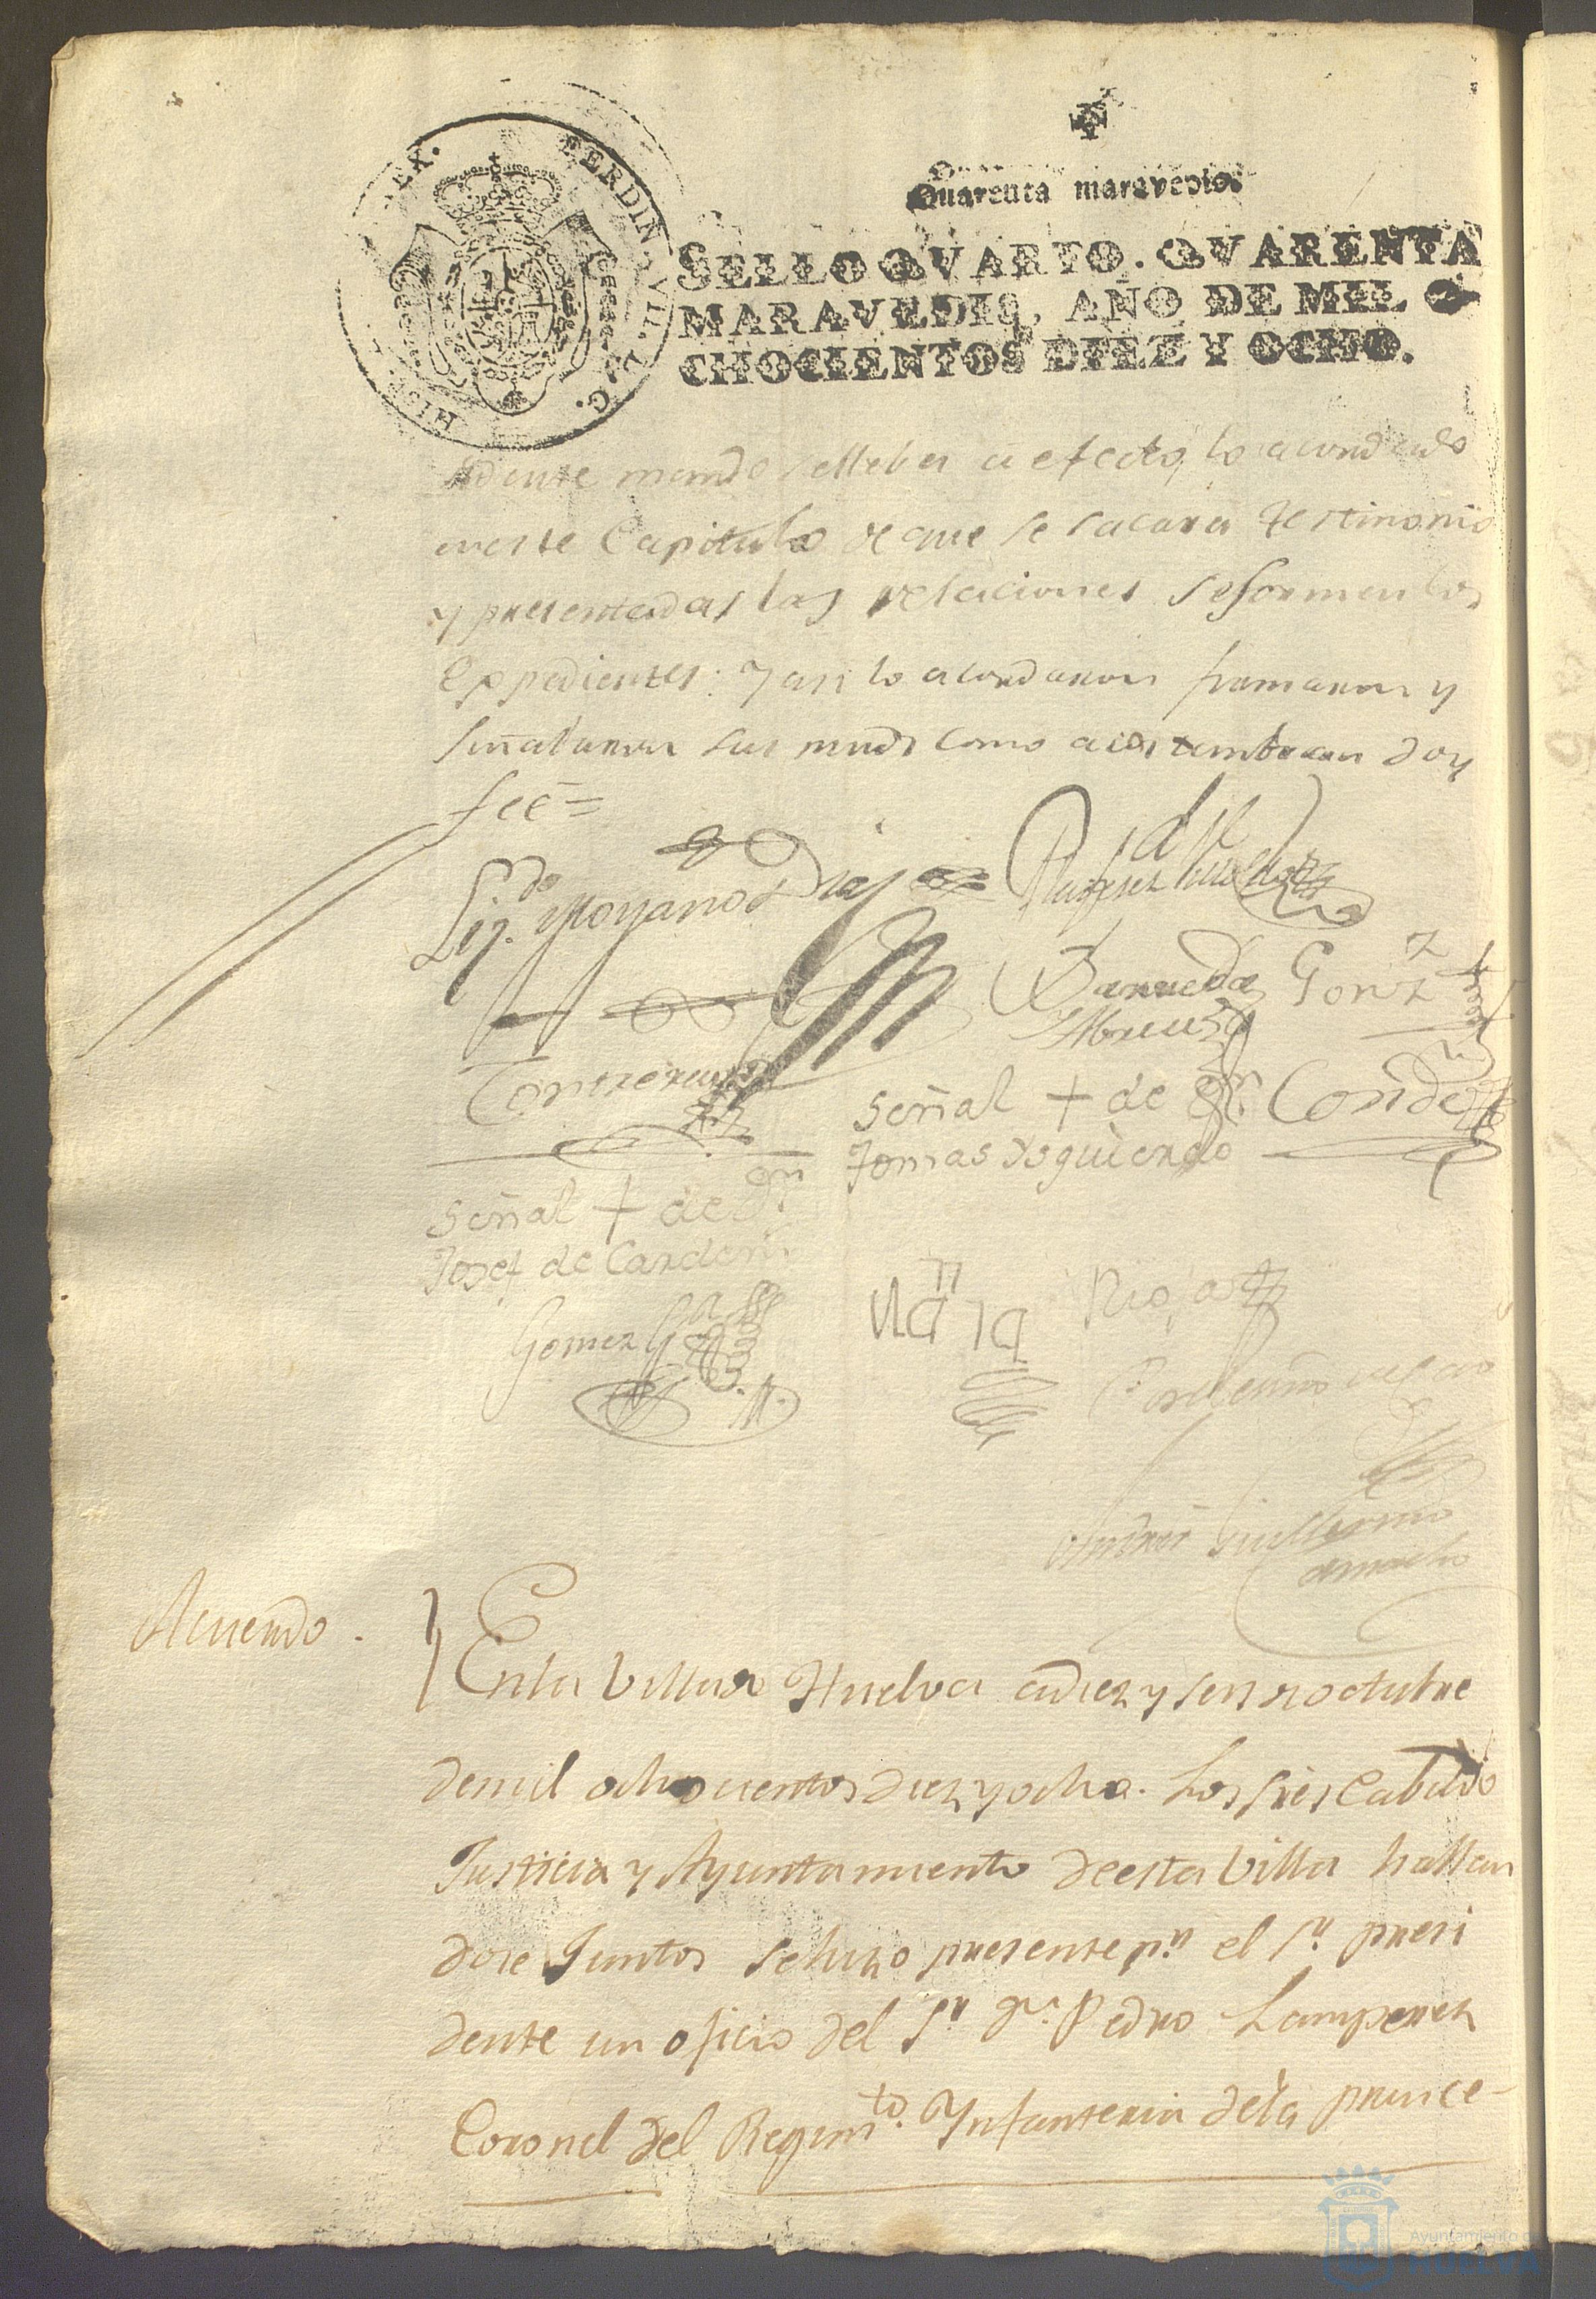 Quarenta maravedis.
SELLO QVARTO. QVARENTA
MARAVEDIS, AÑO DE MIL O
CHOCIENTOS DIEZ Y OCHO.
FERDIN. VII. D. G. HISP. REX.
mando se llebe a efecto, lo acordado
en este Capitulo de que se sacara testimonio
y presentadas las relaciones se formen los
Expedientes: y asi lo acordaron firmaron y
señalaron sus mrds como acostumbran doy
feé=
Liz.do Moyano Diaz
Barreda Gonz.z
Contreras
Señal + de Dn. Conde
Tomas Ysquierdo
Señal + de Dn.
Josef de Carden.
Gomez
Rioja
Acuerdo.
En la Villa de Huelva a diez y seis de octubre
de mil ochocientos diez y ocho. Los sres Cabildo
Justicia y Ayuntamiento de esta Villa hallan
dose Juntos se hizo presente pr. el sr. presi
dente un oficio del Sr. Dn. Pedro Lamperez
Coronel del Regim.to Ynfanteria de la prince-
Ayuntamiento de
HUELVA